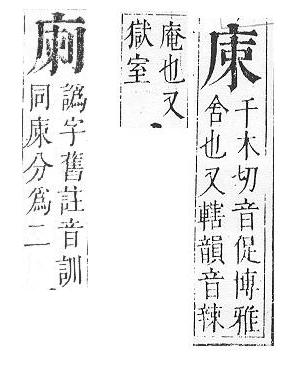 千木切音促博雅
舍也又轄韻音辣
庵也又
獄室
譌字舊註音訓
同分為二